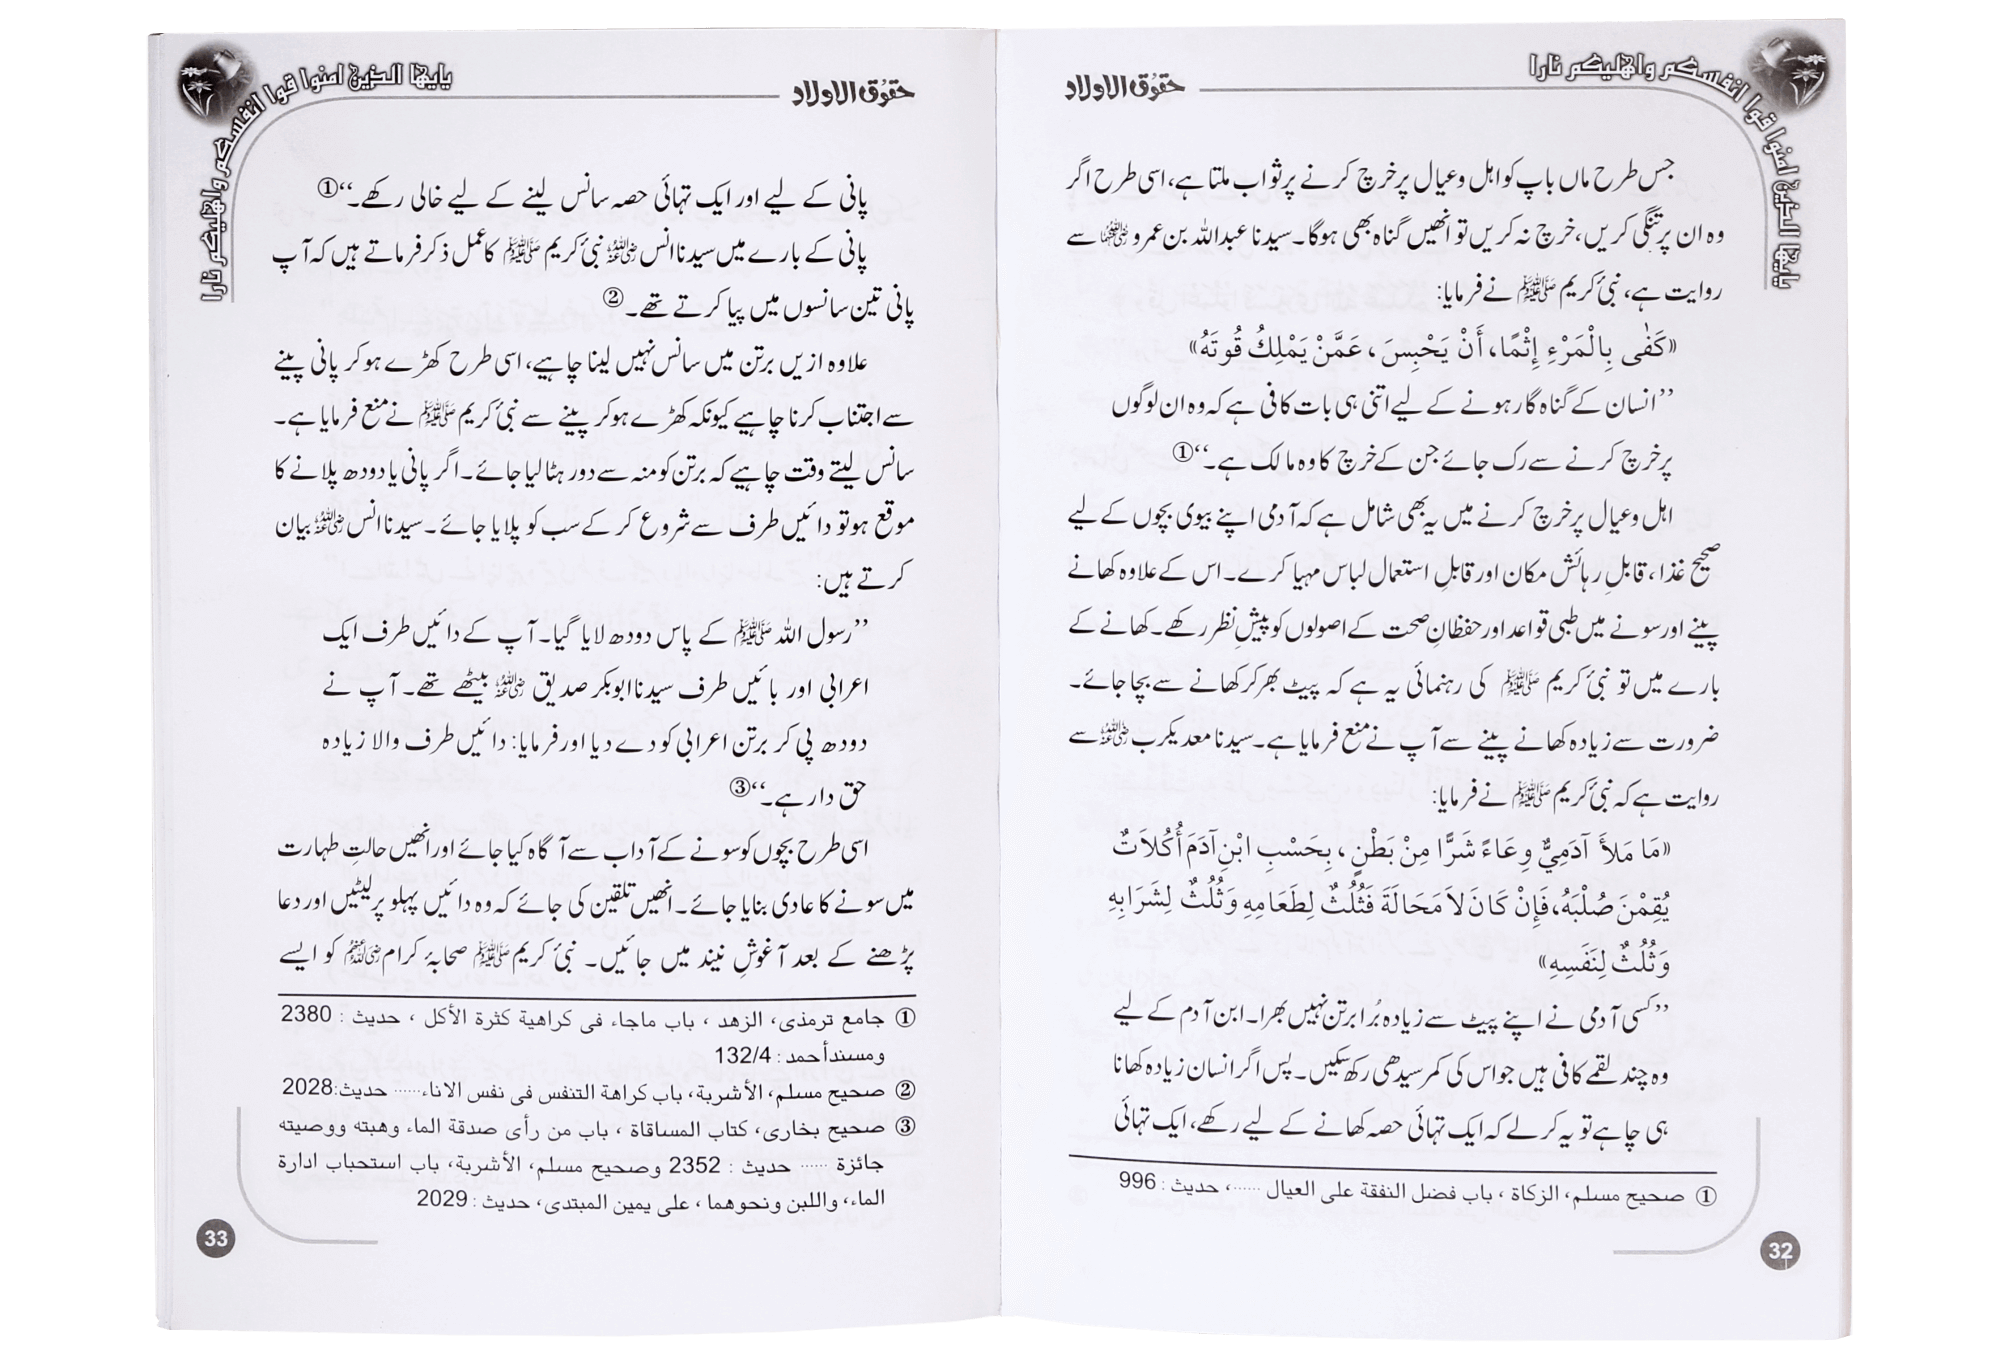 حقوق الاولاد
یایها الذین امنوا قوا انفسکم واهلیکم نارا
جس طرح ماں باپ کو اہل و عیال پر خرچ کرنے پر ثواب ملتا ہے، اسی طرح اگر
وہ ان پر تنگی کریں، خرچ نہ کریں تو انھیں گناہ بھی ہوگا۔ سیدنا عبداللہ بن عمرو رضی اللہ عنہما سے
روایت ہے، نبیٔ کریم ﷺ نے فرمایا:
«كَفٰى بِالْمَرْءِ إِثْمًا، أَنْ يَحْبِسَ، عَمَّنْ يَمْلِكُ قُوتَهُ»
’’انسان کے گناہ گار ہونے کے لیے اتنی ہی بات کافی ہے کہ وہ ان لوگوں
پر خرچ کرنے سے رک جائے جن کے خرچ کا وہ مالک ہے۔‘‘①
اہل و عیال پر خرچ کرنے میں یہ بھی شامل ہے کہ آدمی اپنے بیوی بچوں کے لیے
صحیح غذا، قابلِ رہائش مکان اور قابلِ استعمال لباس مہیا کرے۔ اس کے علاوہ کھانے
پینے اور سونے میں طبی قواعد اور حفظانِ صحت کے اصولوں کو پیشِ نظر رکھے۔ کھانے کے
بارے میں تو نبیٔ کریم ﷺ کی رہنمائی یہ ہے کہ پیٹ بھر کر کھانے سے بچا جائے۔
ضرورت سے زیادہ کھانے پینے سے آپ نے منع فرمایا ہے۔ سیدنا معدیکرب رضی اللہ عنہ سے
روایت ہے کہ نبیٔ کریم ﷺ نے فرمایا:
«مَا مَلأَ آدَمِيٌّ وِعَاءً شَرًّا مِنْ بَطْنٍ، بِحَسْبِ ابْنِ آدَمَ أُكُلاَتٌ
يُقِمْنَ صُلْبَهُ، فَإِنْ كَانَ لاَ مَحَالَةَ فَثُلُثٌ لِطَعَامِهِ وَثُلُثٌ لِشَرَابِهِ
وَثُلُثٌ لِنَفَسِهِ»
’’کسی آدمی نے اپنے پیٹ سے زیادہ بُرا برتن نہیں بھرا۔ ابن آدم کے لیے
وہ چند لقمے کافی ہیں جو اس کی کمر سیدھی رکھ سکیں۔ پس اگر انسان زیادہ کھانا
ہی چاہے تو یہ کرلے کہ ایک تہائی حصہ کھانے کے لیے رکھے، ایک تہائی
① صحیح مسلم، الزکاة ، باب فضل النفقة على العيال ......، حدیث : 996
32
حقوق الاولاد
یایها الذین امنوا قوا انفسکم واهلیکم نارا
پانی کے لیے اور ایک تہائی حصہ سانس لینے کے لیے خالی رکھے۔‘‘①
پانی کے بارے میں سیدنا انس رضی اللہ عنہ نبیٔ کریم ﷺ کا عمل ذکر فرماتے ہیں کہ آپ
پانی تین سانسوں میں پیا کرتے تھے۔②
علاوہ ازیں برتن میں سانس نہیں لینا چاہیے، اسی طرح کھڑے ہوکر پانی پینے
سے اجتناب کرنا چاہیے کیونکہ کھڑے ہوکر پینے سے نبیٔ کریم ﷺ نے منع فرمایا ہے۔
سانس لیتے وقت چاہیے کہ برتن کو منہ سے دور ہٹا لیا جائے۔ اگر پانی یا دودھ پلانے کا
موقع ہو تو دائیں طرف سے شروع کر کے سب کو پلایا جائے۔ سیدنا انس رضی اللہ عنہ بیان
کرتے ہیں:
’’رسول اللہ ﷺ کے پاس دودھ لایا گیا۔ آپ کے دائیں طرف ایک
اعرابی اور بائیں طرف سیدنا ابوبکر صدیق رضی اللہ عنہ بیٹھے تھے۔ آپ نے
دودھ پی کر برتن اعرابی کو دے دیا اور فرمایا: دائیں طرف والا زیادہ
حق دار ہے۔‘‘③
اسی طرح بچوں کو سونے کے آداب سے آگاہ کیا جائے اور انھیں حالتِ طہارت
میں سونے کا عادی بنایا جائے۔ انھیں تلقین کی جائے کہ وہ دائیں پہلو پر لیٹیں اور دعا
پڑھنے کے بعد آغوشِ نیند میں جائیں۔ نبیٔ کریم ﷺ صحابۂ کرام رضی اللہ عنہم کو ایسے
① جامع ترمذی، الزهد ، باب ماجاء فی کراهية کثرة الأكل ، حدیث : 2380
ومسند أحمد : 132/4
② صحیح مسلم، الأشربة، باب کراهة التنفس فی نفس الاناء...... حدیث:2028
③ صحیح بخاری، کتاب المساقاة ، باب من رأى صدقة الماء وهبته ووصیته
جائزة ...... حدیث : 2352 وصحیح مسلم، الأشربة، باب استحباب ادارة
الماء، واللبن ونحوهما ، علی یمین المبتدی، حدیث : 2029
33